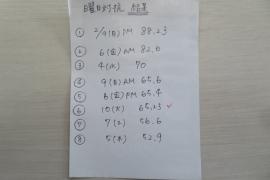 曜日対抗 結果
① 2/9(日)PM 88.23
② 6(金)AM 82.6
③ 4(水) 70
④ 9(日)AM 65.6
⑤ 6(金)PM 65.4
⑥ 10(火) 65.23 ✓
⑦ 7(土) 56.6
⑧ 5(木) 52.9